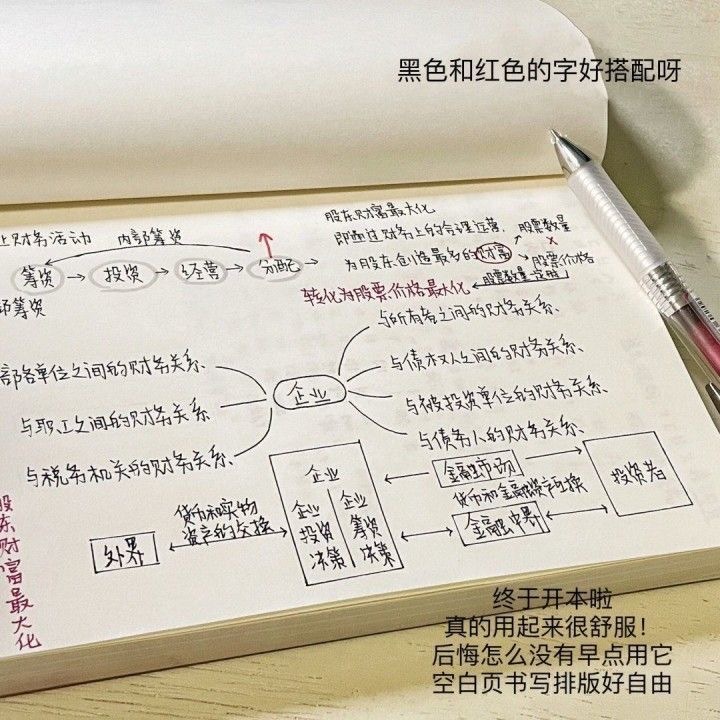 黑色和红色的字好搭配呀
股东财富最大化
财务活动 内部筹资
即通过财务上的合理运营、股票数量
筹资 → 投资 → 经营 → 分配 →
为股东创造最多的财富 → 股票价格
筹资
转化为股票价格最大化 股票数量一定时
与所有者之间的财务关系、
部各单位之间的财务关系、
与债权人之间的财务关系、
企业
与职工之间的财务关系、
与被投资单位的财务关系、
与税务机关的财务关系、
与债务人的财务关系、
企业
金融市场
投资者
货币和实物
资产的交换
企业投资决策
企业筹资决策
货币和金融资产交换
外界
金融中介
股东财富最大化
终于开本啦
真的用起来很舒服！
后悔怎么没有早点用它
空白页书写排版好自由